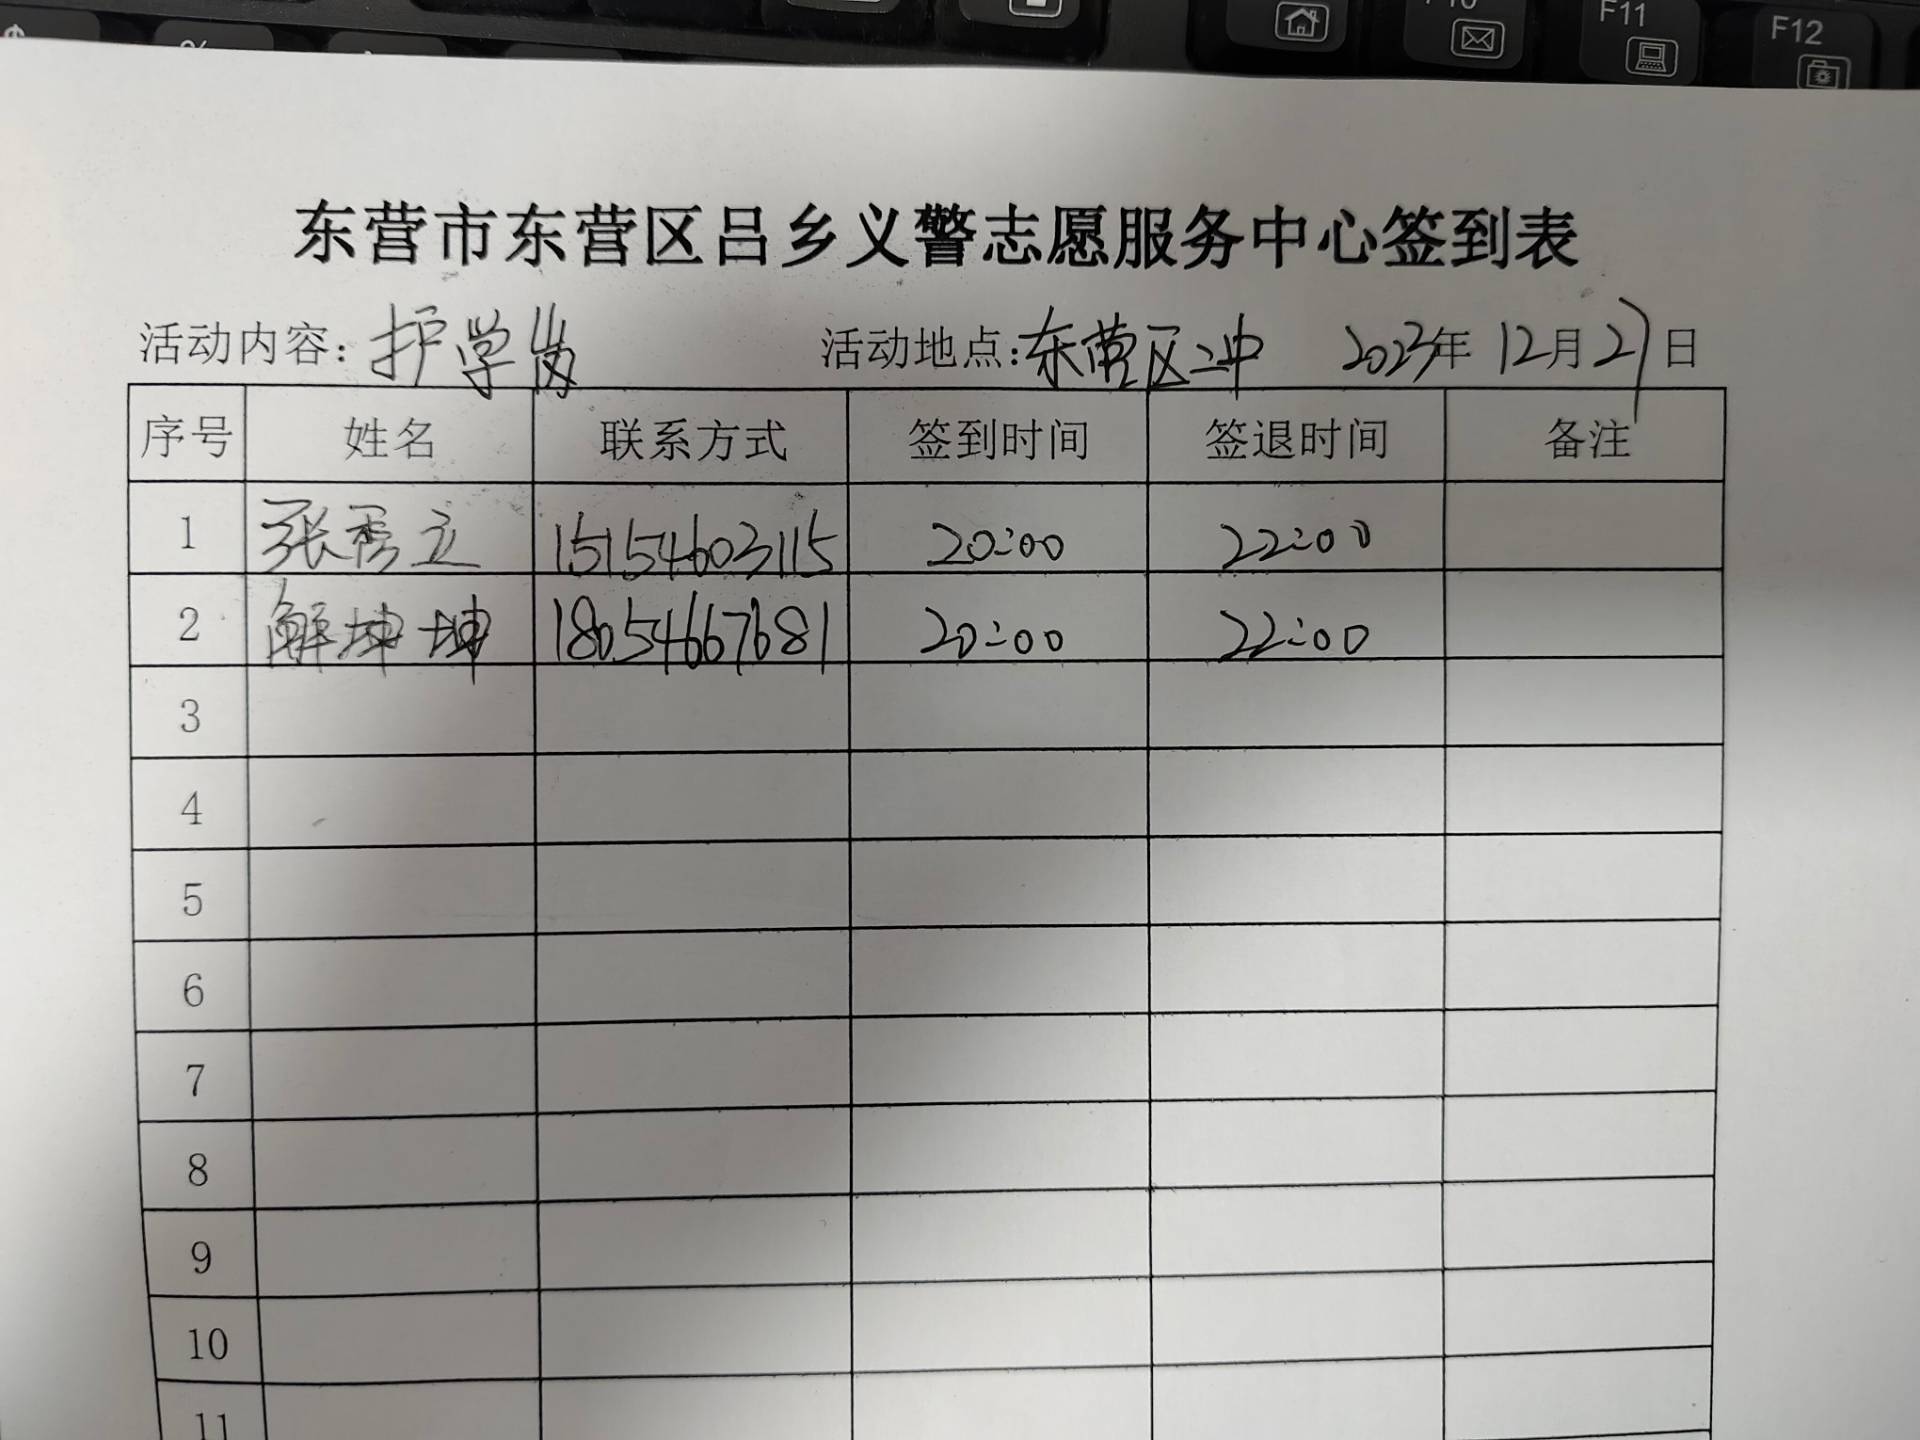 F11
F12
东营市东营区吕乡义警志愿服务中心签到表
活动内容：护学岗 活动地点：东营区二中 2023年 12月27日
序号 姓名 联系方式 签到时间 签退时间 备注
1 张秀立 15154603115 20:00 22:00
2 解坤坤 18054667681 20:00 22:00
3
4
5
6
7
8
9
10
11